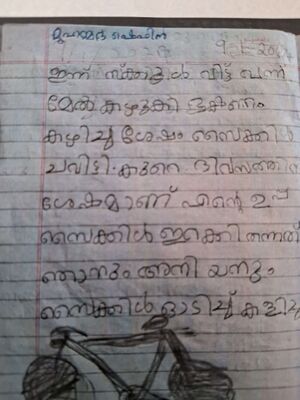 മുഹമ്മദ്
ഇന്ന് സ്ക്കൂൾ വിട്ട് വന്ന്
മേൽ കഴുകി ഭക്ഷണം
കഴിച്ച ശേഷം സൈക്കിൾ
ചവിട്ടി. കുറെ ദിവസത്തിന
ശേഷമാണ് എന്റെ ഉപ്പ
സൈക്കിൾ ഇറക്കി തന്നത്
ഞാനും അനിയനും
സൈക്കിൾ ഓടിച്ച് കളിച്ചു